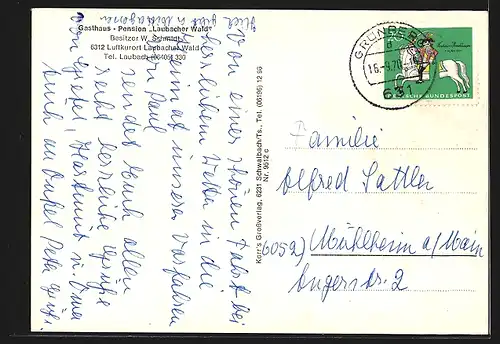 Gasthaus - Pension „Laubacher Wald"
Besitzer W. Schmidt
6312 Luftkurort Laubacher Wald
Tel. Laubach (06405) 330
Von einer schönen Fahrt bei
herrlichem Wetter in die
Heimat unserer Vorfahren
von Paul
sendet Euch allen
recht herzliche Grüße
Hartmut u. Erna
Auch an Onkel Peter
Korr's Großverlag, 6231 Schwalbach/Ts., Tel. (06196) 12 96
Nr. 9512 c
GRÜNBERG
d
16.-9.70
631
DEUTSCHE BUNDESPOST
Familie
Alfred Sattler
(6052) Mühlheim a/Main
Angerstr. 2